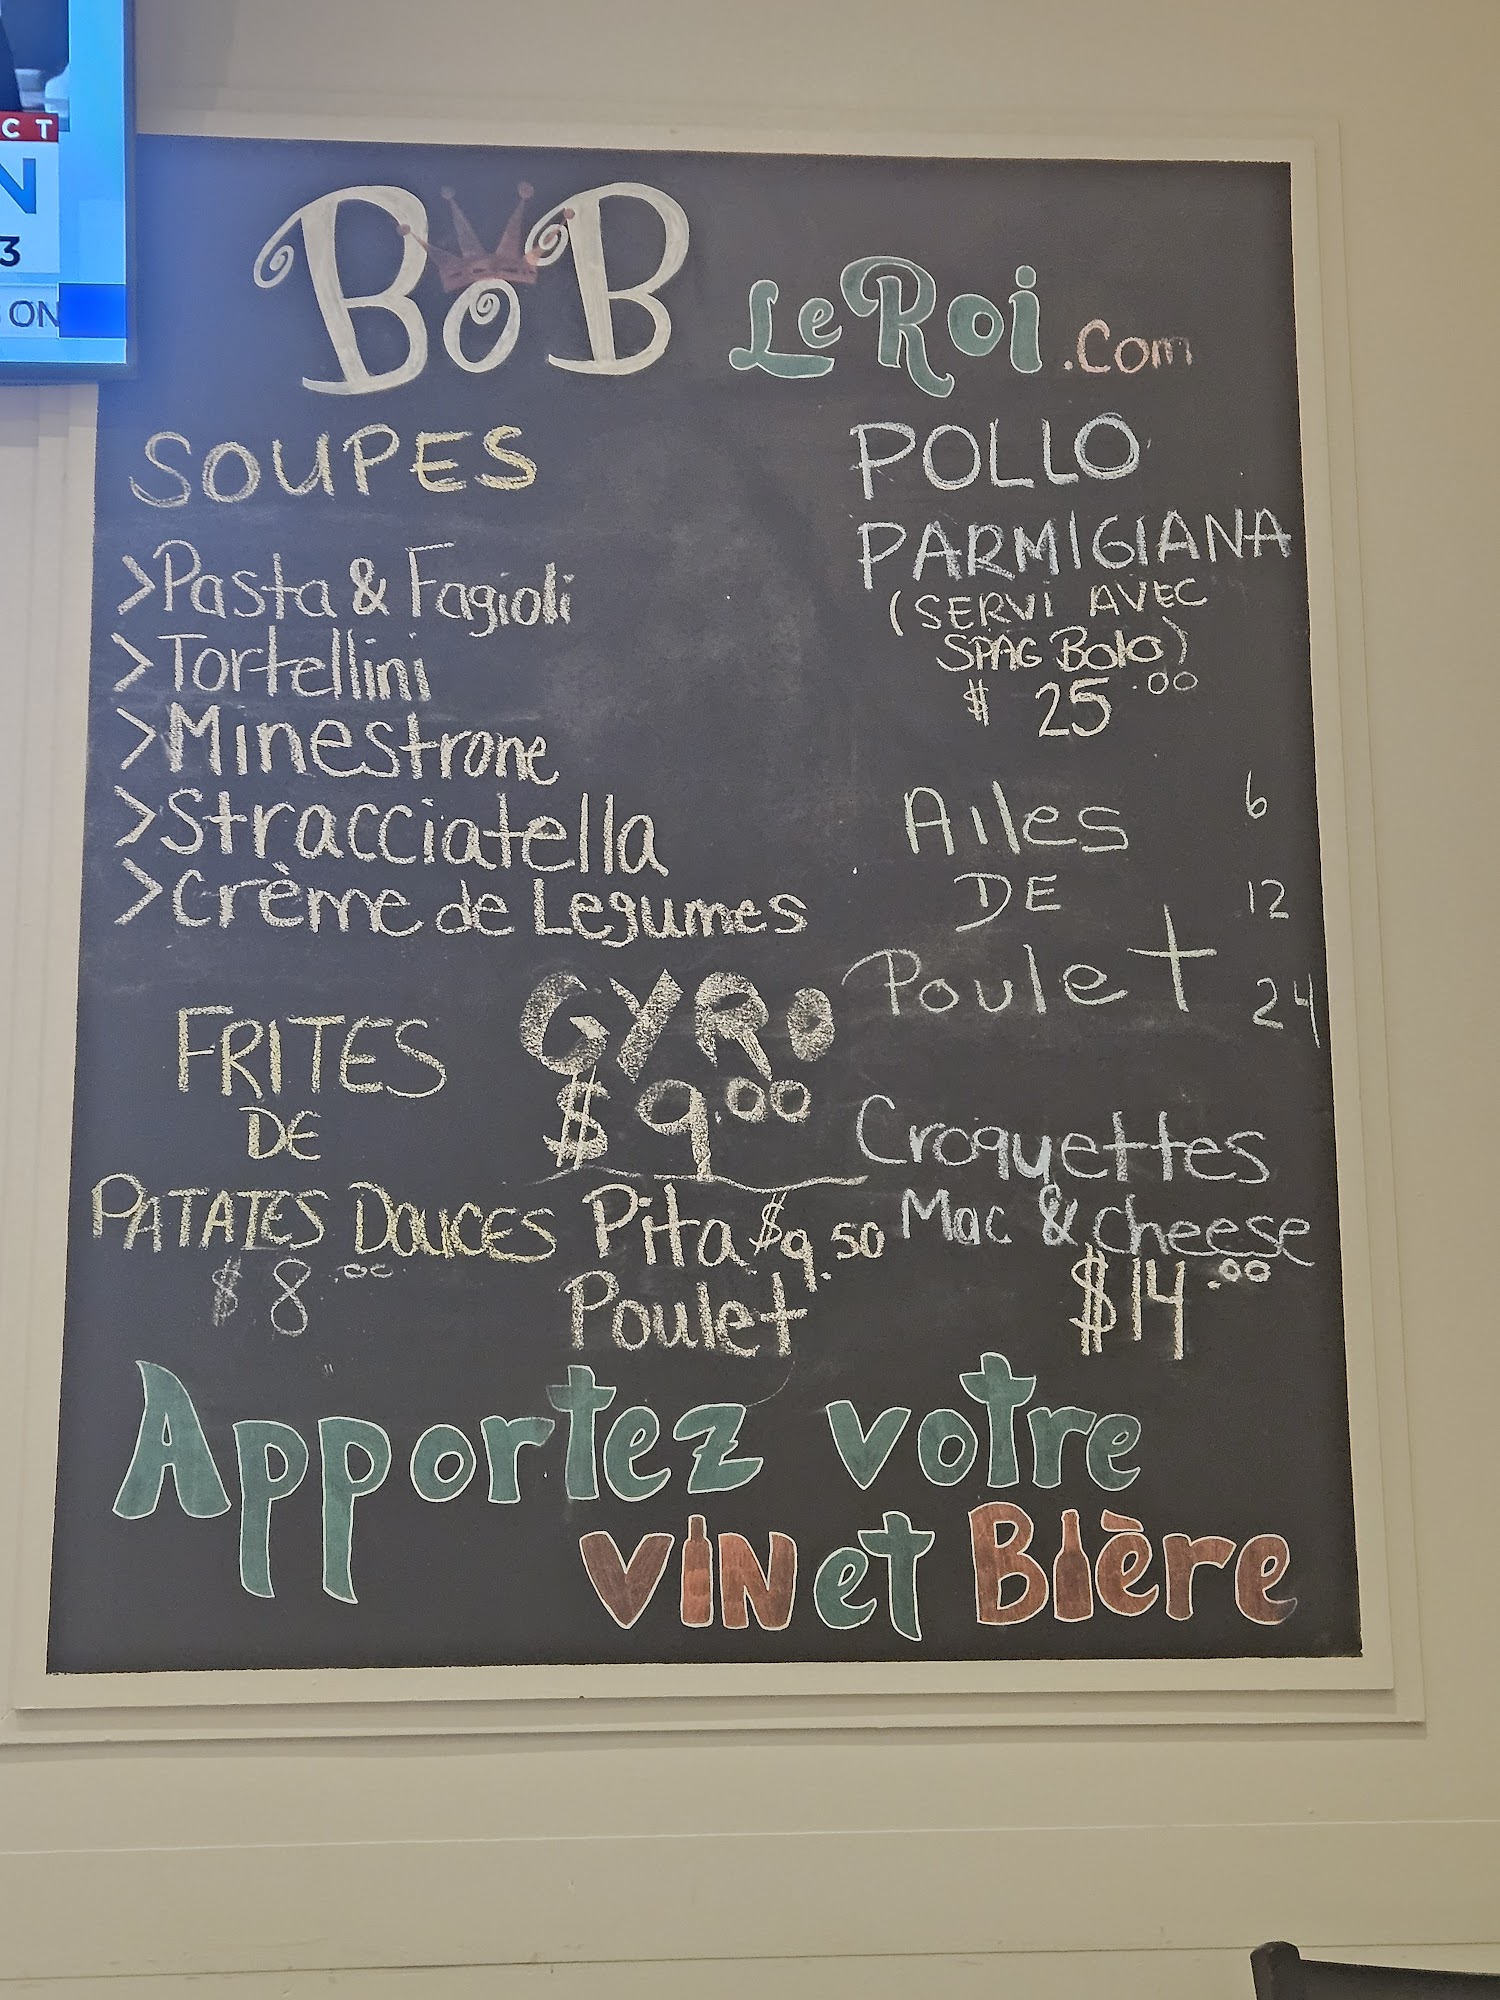 CT
N
3
ON
BoB LeRoi.com
SOUPES
>Pasta & Fagioli
>Tortellini
>Minestrone
>Stracciatella
>Crème de Legumes
FRITES
DE
PATATES DOUCES
$8.00
GYRO
$9.00
Pita $9.50
Poulet
POLLO
PARMIGIANA
(SERVI AVEC
SPAG Bolo)
$ 25.00
Ailes 6
DE 12
Poulet 24
Croquettes
Mac & cheese
$14.00
Apportez votre
VIN et Bière